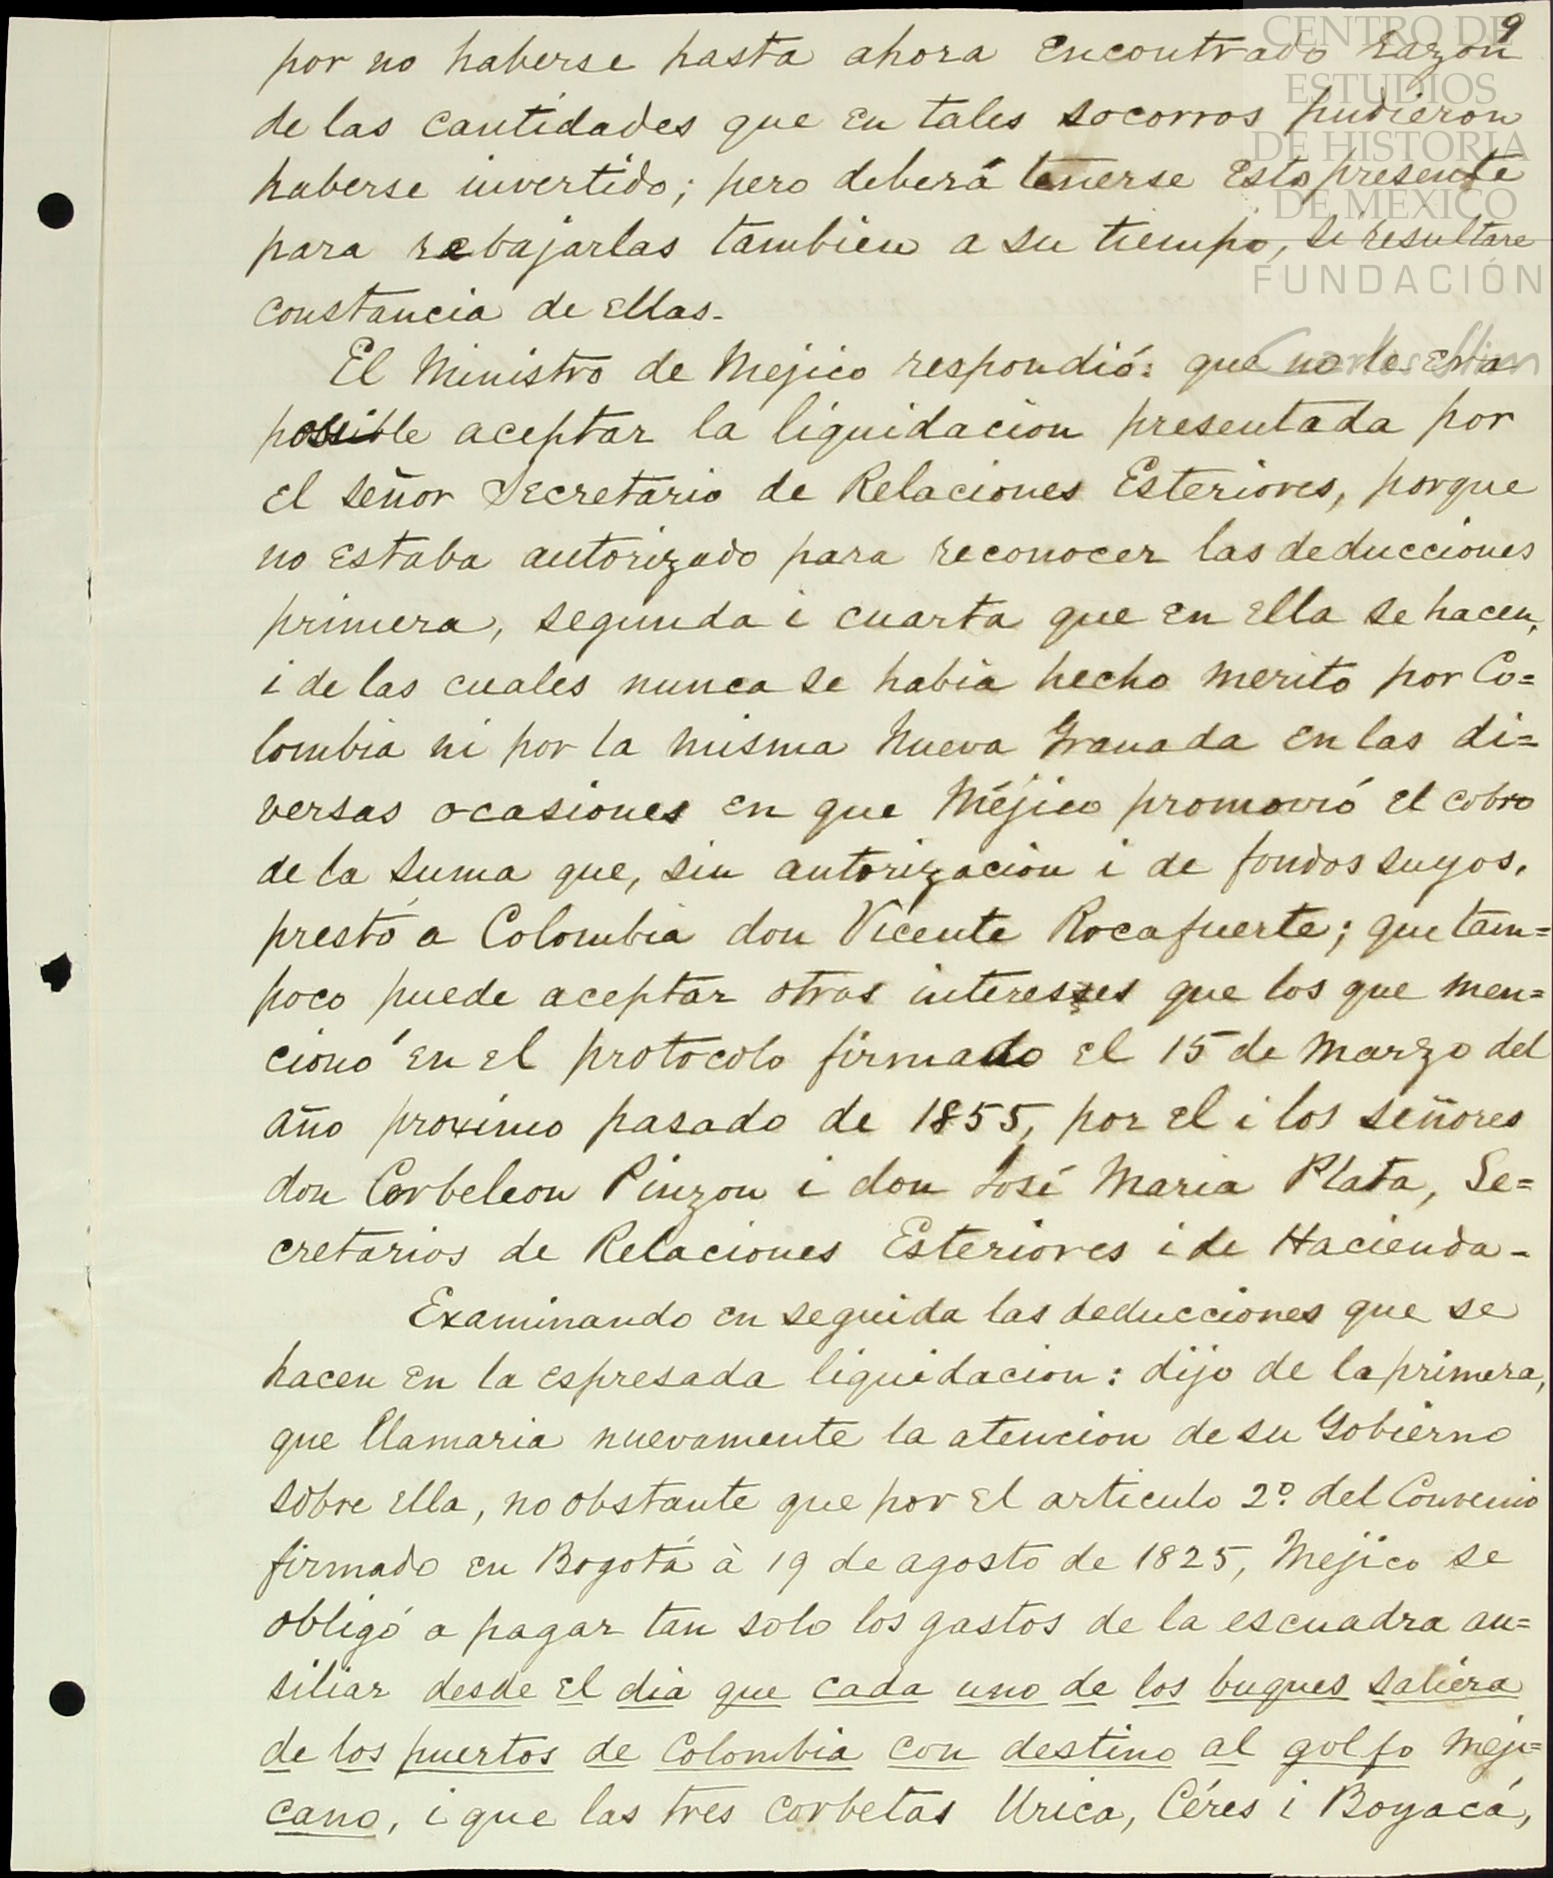 9
CENTRO DE
ESTUDIOS
DE HISTORIA
DE MEXICO
FUNDACIÓN
Carlos Slim
por no haberse hasta ahora encontrado razon
de las cantidades que en tales socorros pudieron
haberse invertido; pero deberá tenerse esto presente
para rebajarlas tambien a su tiempo, si resultare
constancia de ellas.
El Ministro de Mejico respondió: que no le era
possible aceptar la liquidacion presentada por
el señor Secretario de Relaciones Esteriores, porque
no estaba autorizado para reconocer las deducciones
primera, segunda i cuarta que en ella se hacen,
i de las cuales nunca se habia hecho merito por Co=
lombia ni por la misma Nueva Granada en las di=
versas ocasiones en que Méjico promovió el cobro
de la suma que, sin autorizacion i de fondos suyos,
prestó a Colombia don Vicente Rocafuerte; que tam=
poco puede aceptar otros interesses que los que men=
cionó en el protocolo firmado el 15 de Marzo del
año proximo pasado de 1855, por el i los señores
don Corbeleon Pinzon i don José Maria Plata, Se=
cretarios de Relaciones Esteriores i de Hacienda-
Examinando en seguida las deducciones que se
hacen en la espresada liquidacion: dijo de la primera,
que llamaria nuevamente la atencion de su Gobierno
sobre ella, no obstante que por el articulo 2º del Convenio
firmado en Bogotá à 19 de agosto de 1825, Mejico se
obligó a pagar tan solo los gastos de la escuadra au=
siliar desde el dia que cada uno de los buques saliera
de los puertos de Colombia con destino al golfo Meji=
cano, i que las tres corbetas Urica, Céres i Boyacá,